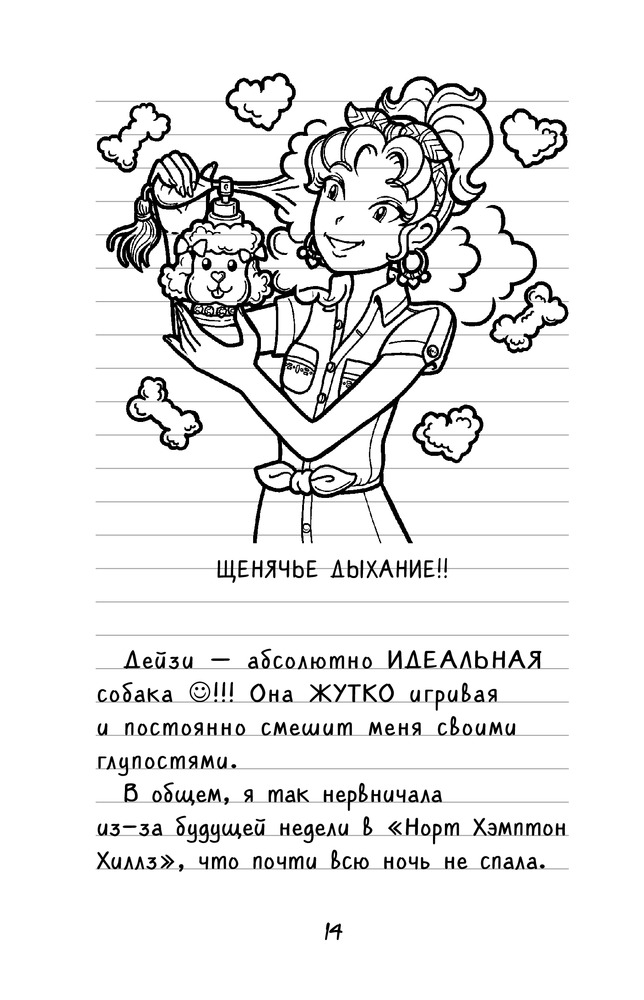 ЩЕНЯЧЬЕ ДЫХАНИЕ!!
Дейзи — абсолютно ИДЕАЛЬНАЯ
собака ☺!!! Она ЖУТКО игривая
и постоянно смешит меня своими
глупостями.
В общем, я так нервничала
из-за будущей недели в «Норт Хэмптон
Хиллз», что почти всю ночь не спала.
14